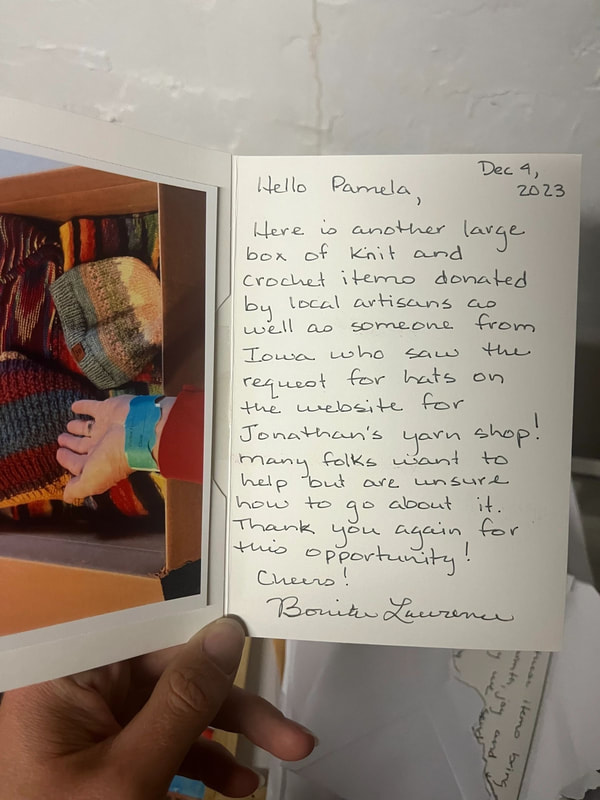 Dec 4,
2023
Hello Pamela,
Here is another large
box of knit and
crochet items donated
by local artisans as
well as someone from
Iowa who saw the
request for hats on
the website for
Jonathan's yarn shop!
many folks want to
help but are unsure
how to go about it.
Thank you again for
this opportunity!
Cheers!
Bonita Lawrence
items bring
joy and